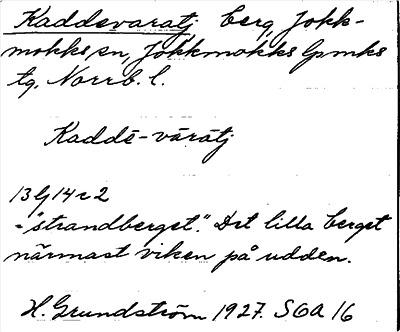 Kaddevaratj berg, Jokk-
mokks sn, Jokkmokks lpmks
tg, Norrb. l.
Kaddē-vārātj
13 lj 14 r 2
= "strandberget." Det lilla berget
närmast viken på udden.
H. Grundström 1927. SOA 16